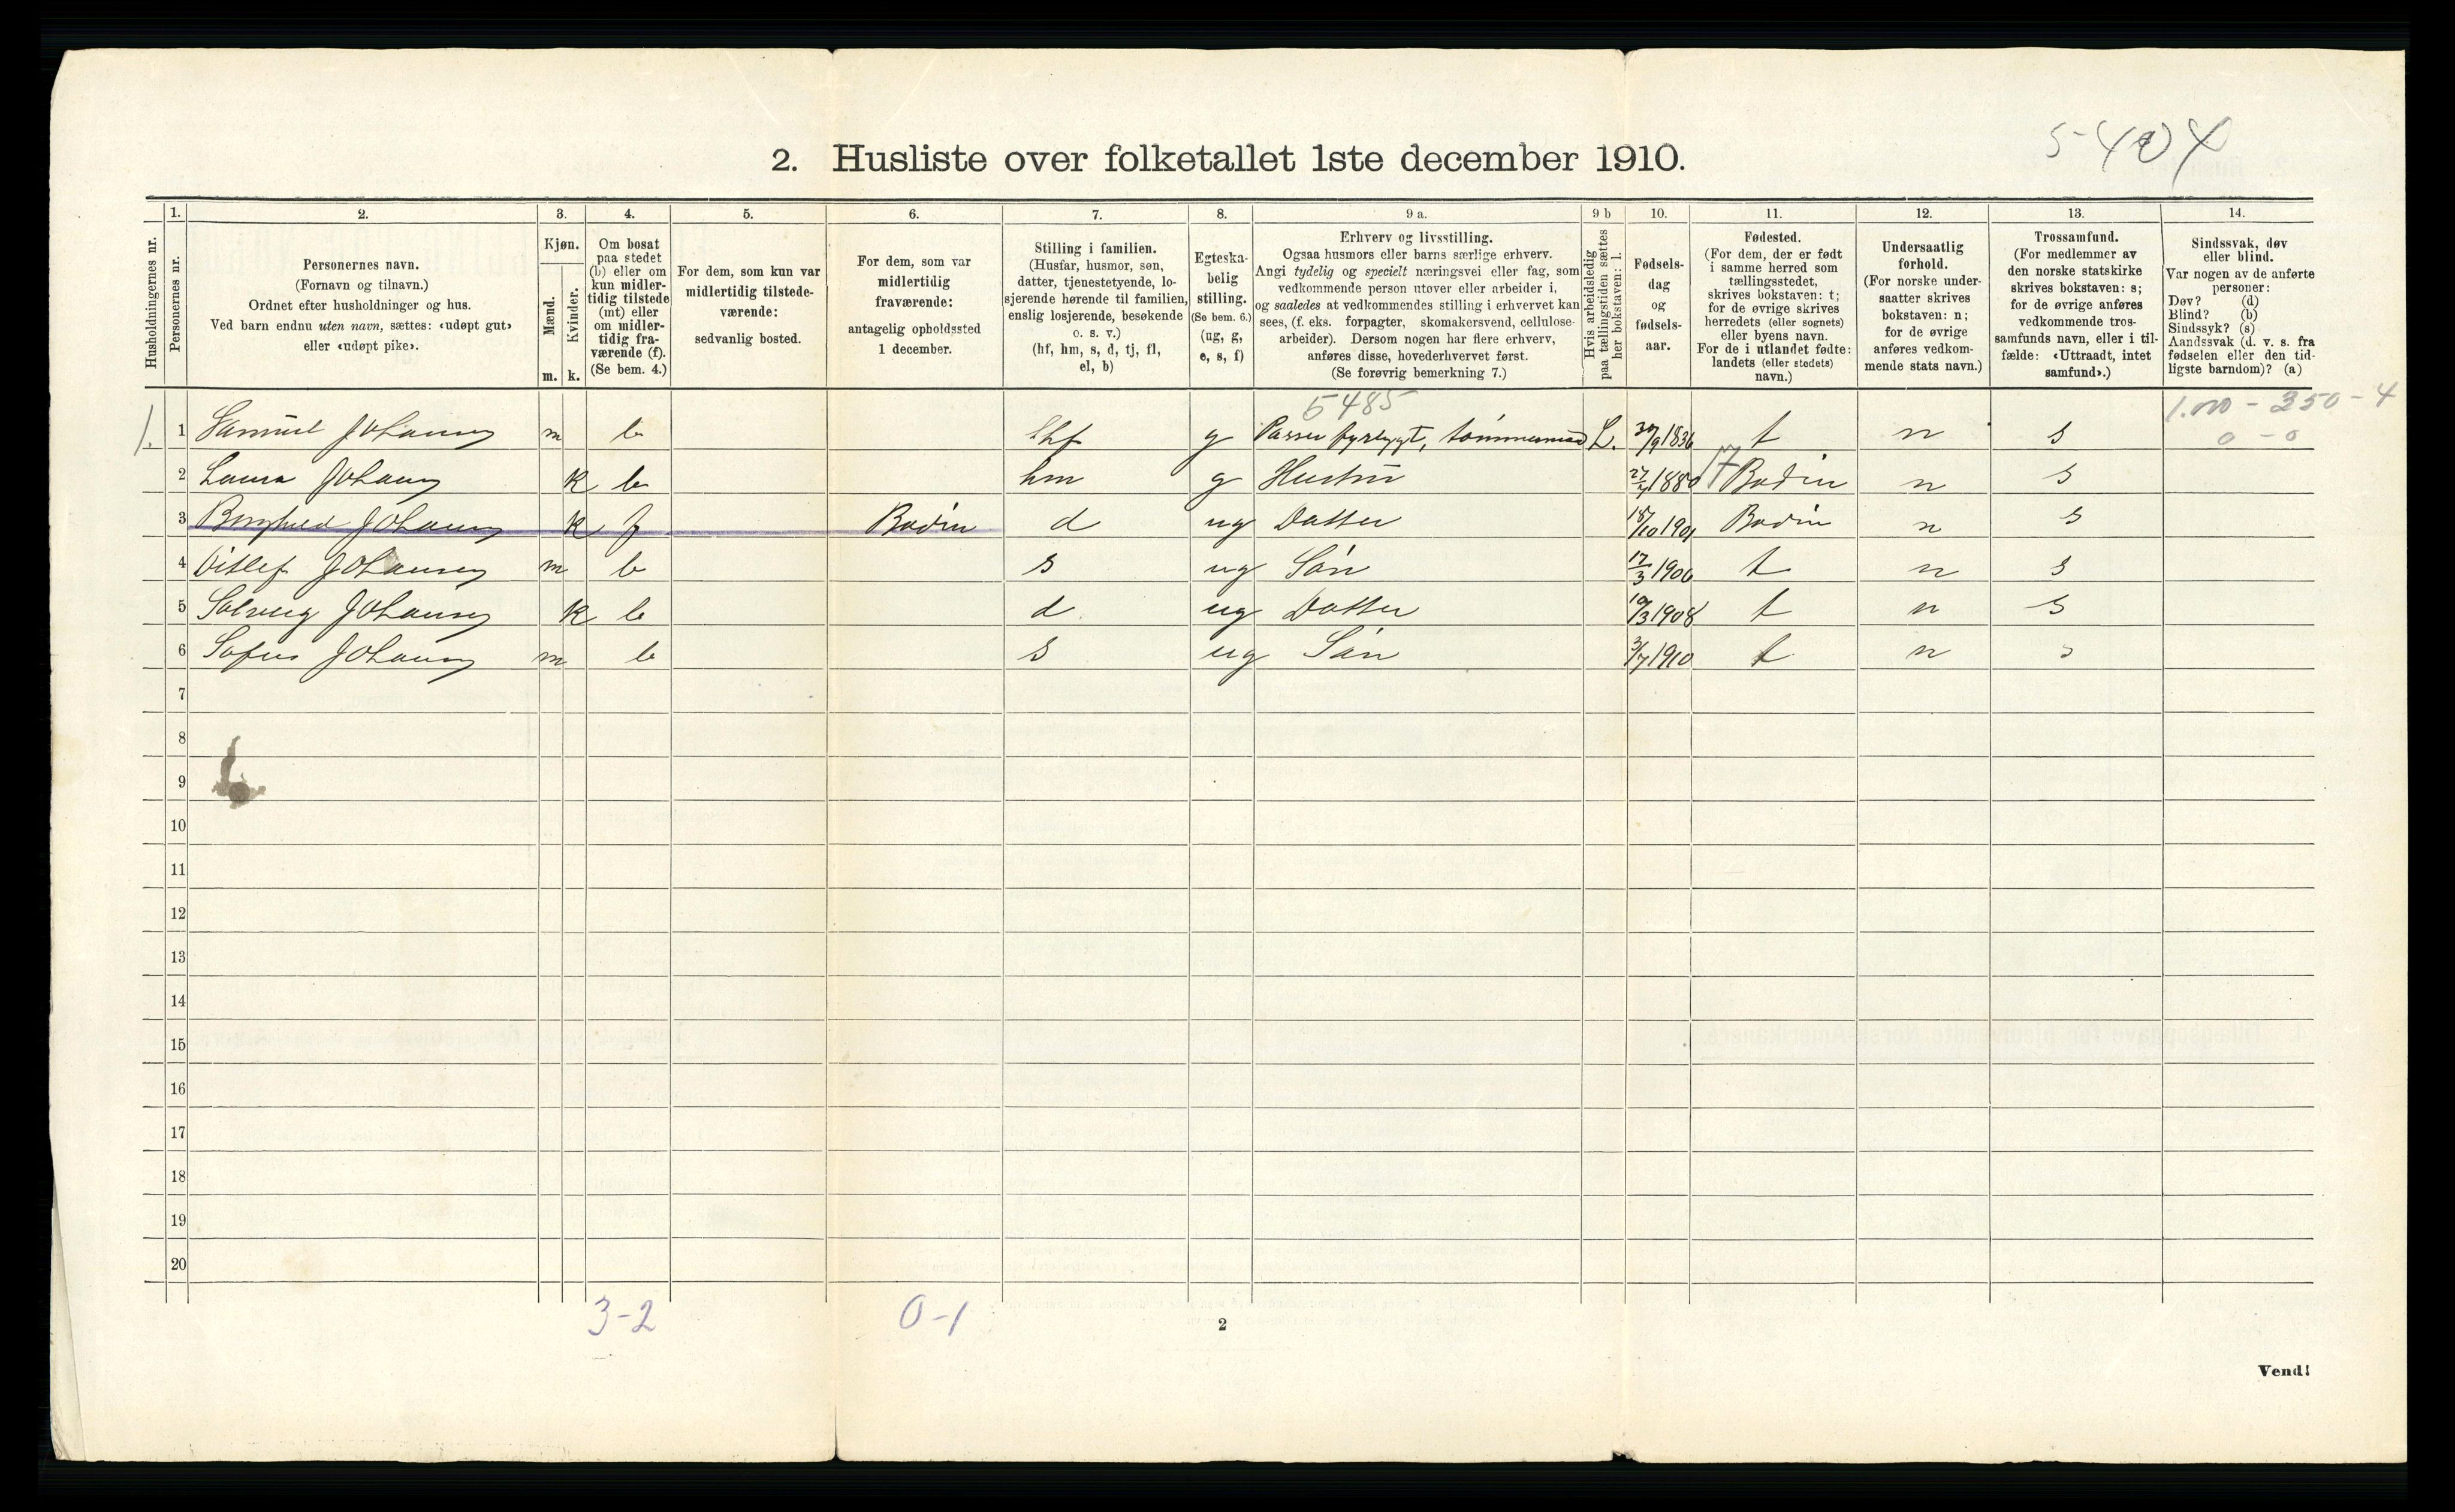 5-404
2. Husliste over folketallet 1ste december 1910.
Husholdningernes nr.
1.
Personernes nr.
2.
Personernes navn.
(Fornavn og tilnavn.)
Ordnet efter husholdninger og hus.
Ved barn endnu uten navn, sættes: «udøpt gut»
eller «udøpt pike».
3.
Kjøn.
Mænd.
Kvinder.
m. k.
4.
Om bosat
paa stedet
(b) eller om
kun midler-
tidig tilstede
(mt) eller
om midler-
tidig fra-
værende (f).
(Se bem. 4.)
5.
For dem, som kun var
midlertidig tilstede-
værende:
sedvanlig bosted.
6.
For dem, som var
midlertidig
fraværende:
antagelig opholdssted
1 december.
7.
Stilling i familien.
(Husfar, husmor, søn,
datter, tjenestetyende, lo-
sjerende hørende til familien,
enslig losjerende, besøkende
o. s. v.)
(hf, hm, s, d, tj, fl,
el, b)
8.
Egteska-
belig
stilling.
(Se bem. 6.)
(ug, g,
e, s, f)
9 a.
Erhverv og livsstilling.
Ogsaa husmors eller barns særlige erhverv.
Angi tydelig og specielt næringsvei eller fag, som
vedkommende person utøver eller arbeider i,
og saaledes at vedkommendes stilling i erhvervet kan
sees, (f. eks. forpagter, skomakersvend, cellulose-
arbeider). Dersom nogen har flere erhverv,
anføres disse, hovederhvervet først.
(Se forøvrig bemerkning 7.)
9 b
Hvis arbeidsledig
paa tællingstiden sættes
her bokstaven: l.
10.
Fødsels-
dag
og
fødsels-
aar.
11.
Fødested.
(For dem, der er født
i samme herred som
tællingsstedet,
skrives bokstaven: t;
for de øvrige skrives
herredets (eller sognets)
eller byens navn.
For de i utlandet fødte:
landets (eller stedets)
navn.)
12.
Undersaatlig
forhold.
(For norske under-
saatter skrives
bokstaven: n;
for de øvrige
anføres vedkom-
mende stats navn.)
13.
Trossamfund.
(For medlemmer av
den norske statskirke
skrives bokstaven: s;
for de øvrige anføres
vedkommende tros-
samfunds navn, eller i til-
fælde: «Uttraadt, intet
samfund».)
14.
Sindssvak, døv
eller blind.
Var nogen av de anførte
personer:
Døv? (d)
Blind? (b)
Sindssyk? (s)
Aandssvak (d. v. s. fra
fødselen eller den tid-
ligste barndom)? (a)
5485 1.000 - 350 - 4
1. 1 Samuel Johansen m b hf g Passer fyrlygt, tømmermand L. 30/9 1836 t n s 0 - 0
2 Laura Johansen k b hm g Hustru 27/4 1880 17 Bodin n s
3 Borghild Johansen k f Bodin d ug Datter 18/10 1901 Bodin n s
4 Ditlef Johansen m b s ug Søn 17/3 1906 t n s
5 Solveig Johansen k b d ug Datter 19/3 1908 t n s
6 Sofus Johansen m b s ug Søn 3/7 1910 t n s
7
8
9
10
11
12
13
14
15
16
17
18
19
20
3-2 0-1
2
Vend!